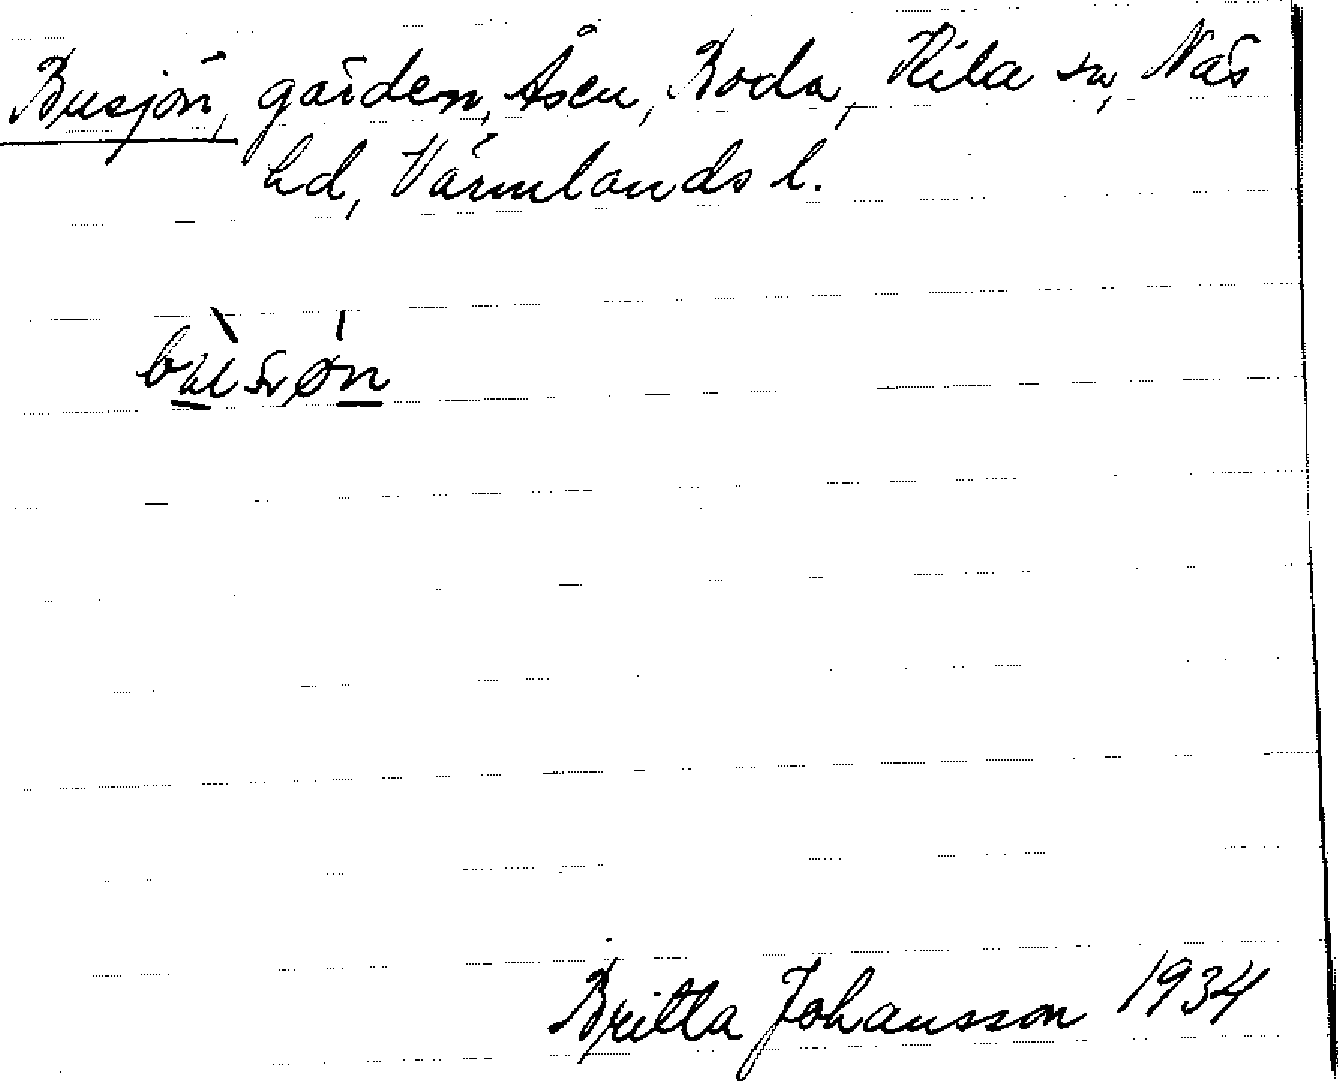 Busjön, gården, Åsen, Boda, Kila sn, Näs
hd, Värmlands l.
Britta Johansson 1934